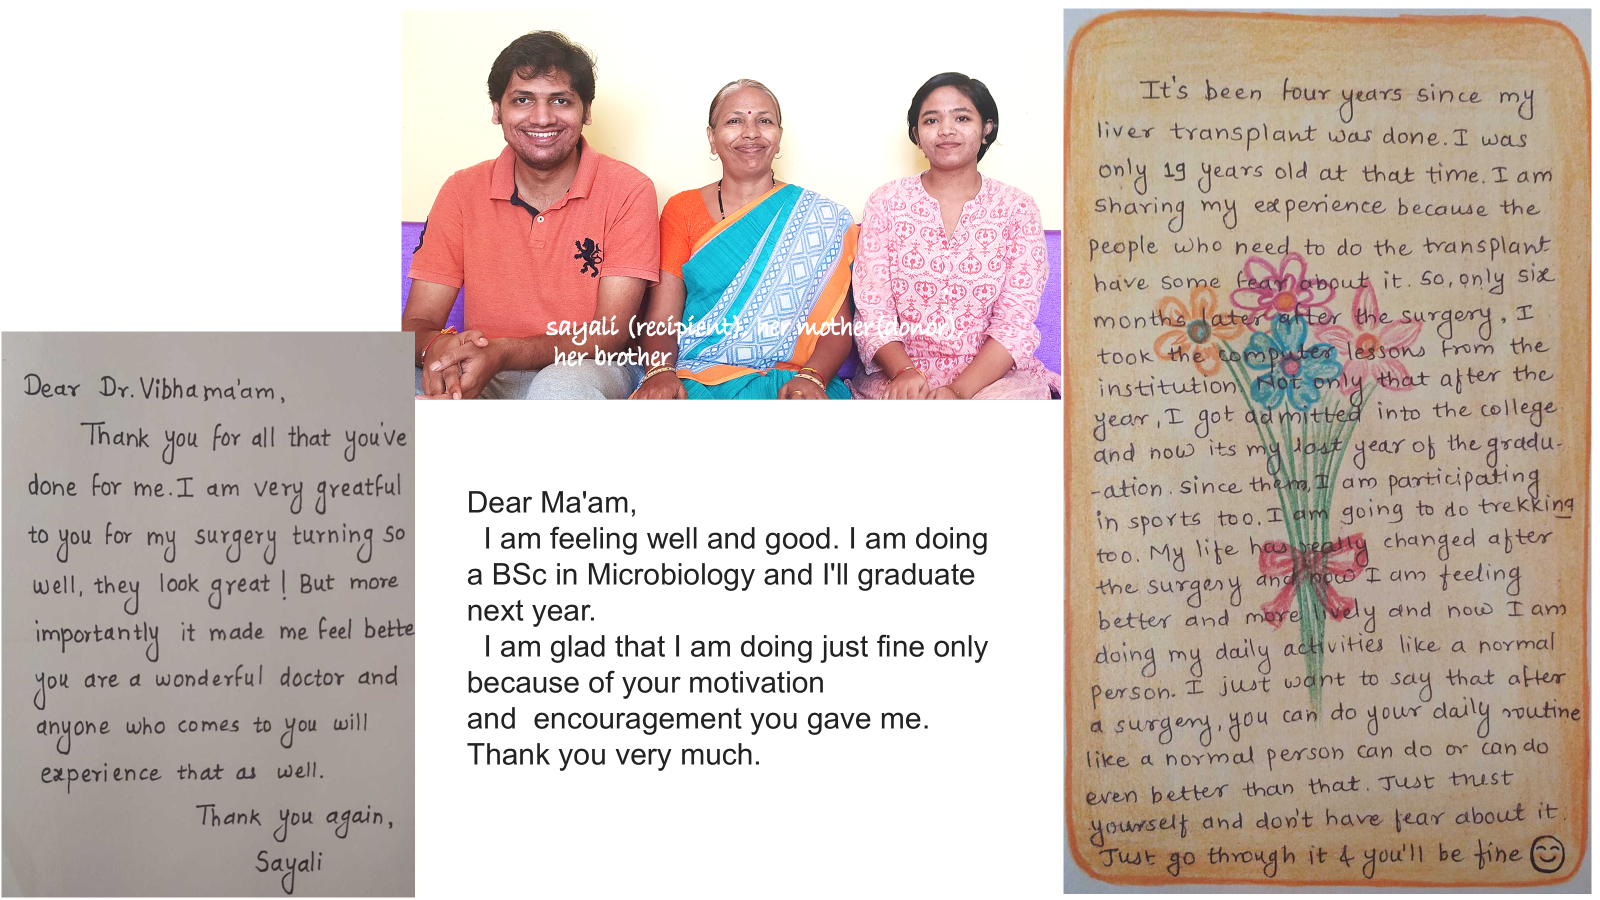 sayali (recipient), her mother(donor)
her brother
Dear Dr. Vibha ma'am,
Thank you for all that you've
done for me. I am very greatful
to you for my surgery turning so
well, they look great! But more
importantly it made me feel bette
you are a wonderful doctor and
anyone who comes to you will
experience that as well.
Thank you again,
Sayali
Dear Ma'am,
I am feeling well and good. I am doing
a BSc in Microbiology and I'll graduate
next year.
I am glad that I am doing just fine only
because of your motivation
and encouragement you gave me.
Thank you very much.
It's been four years since my
liver transplant was done. I was
only 19 years old at that time. I am
sharing my experience because the
people who need to do the transplant
have some fear about it. So, only six
months later after the surgery, I
took the computer lessons from the
institution. Not only that after the
year, I got admitted into the college
and now its my last year of the gradu-
-ation. Since them, I am participating
in sports too. I am going to do trekking
too. My life has really changed after
the surgery and now I am feeling
better and more lively and now I am
doing my daily activities like a normal
person. I just want to say that after
a surgery, you can do your daily routine
like a normal person can do or can do
even better than that. Just trust
yourself and don't have fear about it.
Just go through it & you'll be fine